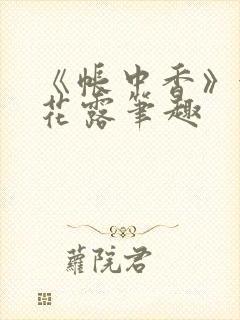 《帐中香》
花露笔趣
萝院君